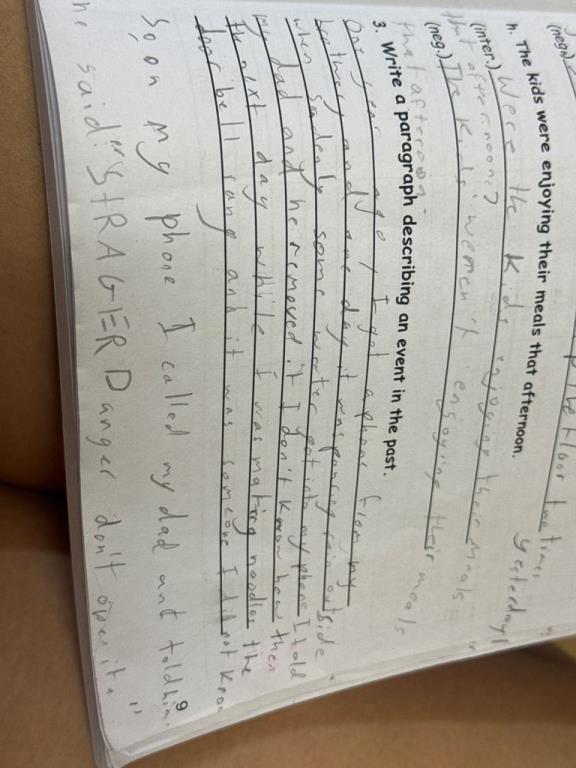 (nega)
the floor two times
yesterday
h. The kids were enjoying their meals that afternoon.
(inter.) Were the kids enjoying their meals
that afternoon?
(neg.) The kids weren't enjoying their meals
that afternoon.
3. Write a paragraph describing an event in the past.
One year ago, I got a phone from my
brother, and one day it was pouring rain outside
when sudenly some water got into my phone I told
my dad and he removed it I don't know how then
the next day while I was making noodles the
door bell rang and it was someone I did not know
So, on my phone I called my dad and told him
he said "STRAGER Danger don't open it"
9